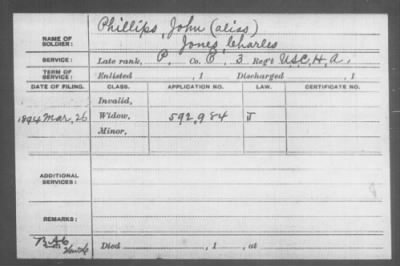 Phillips, John (alias)
NAME OF SOLDIER: Jones, Charles
SERVICE: Late rank, P, Co. E, 3 Reg't U.S.C.H.A.
TERM OF SERVICE: Enlisted , 1 Discharged , 1
DATE OF FILING. CLASS. APPLICATION NO. LAW. CERTIFICATE NO.
Invalid,
1894 Mar. 26 Widow, 592,984 J
Minor,
ADDITIONAL SERVICES:
REMARKS:
Died , 1 , at